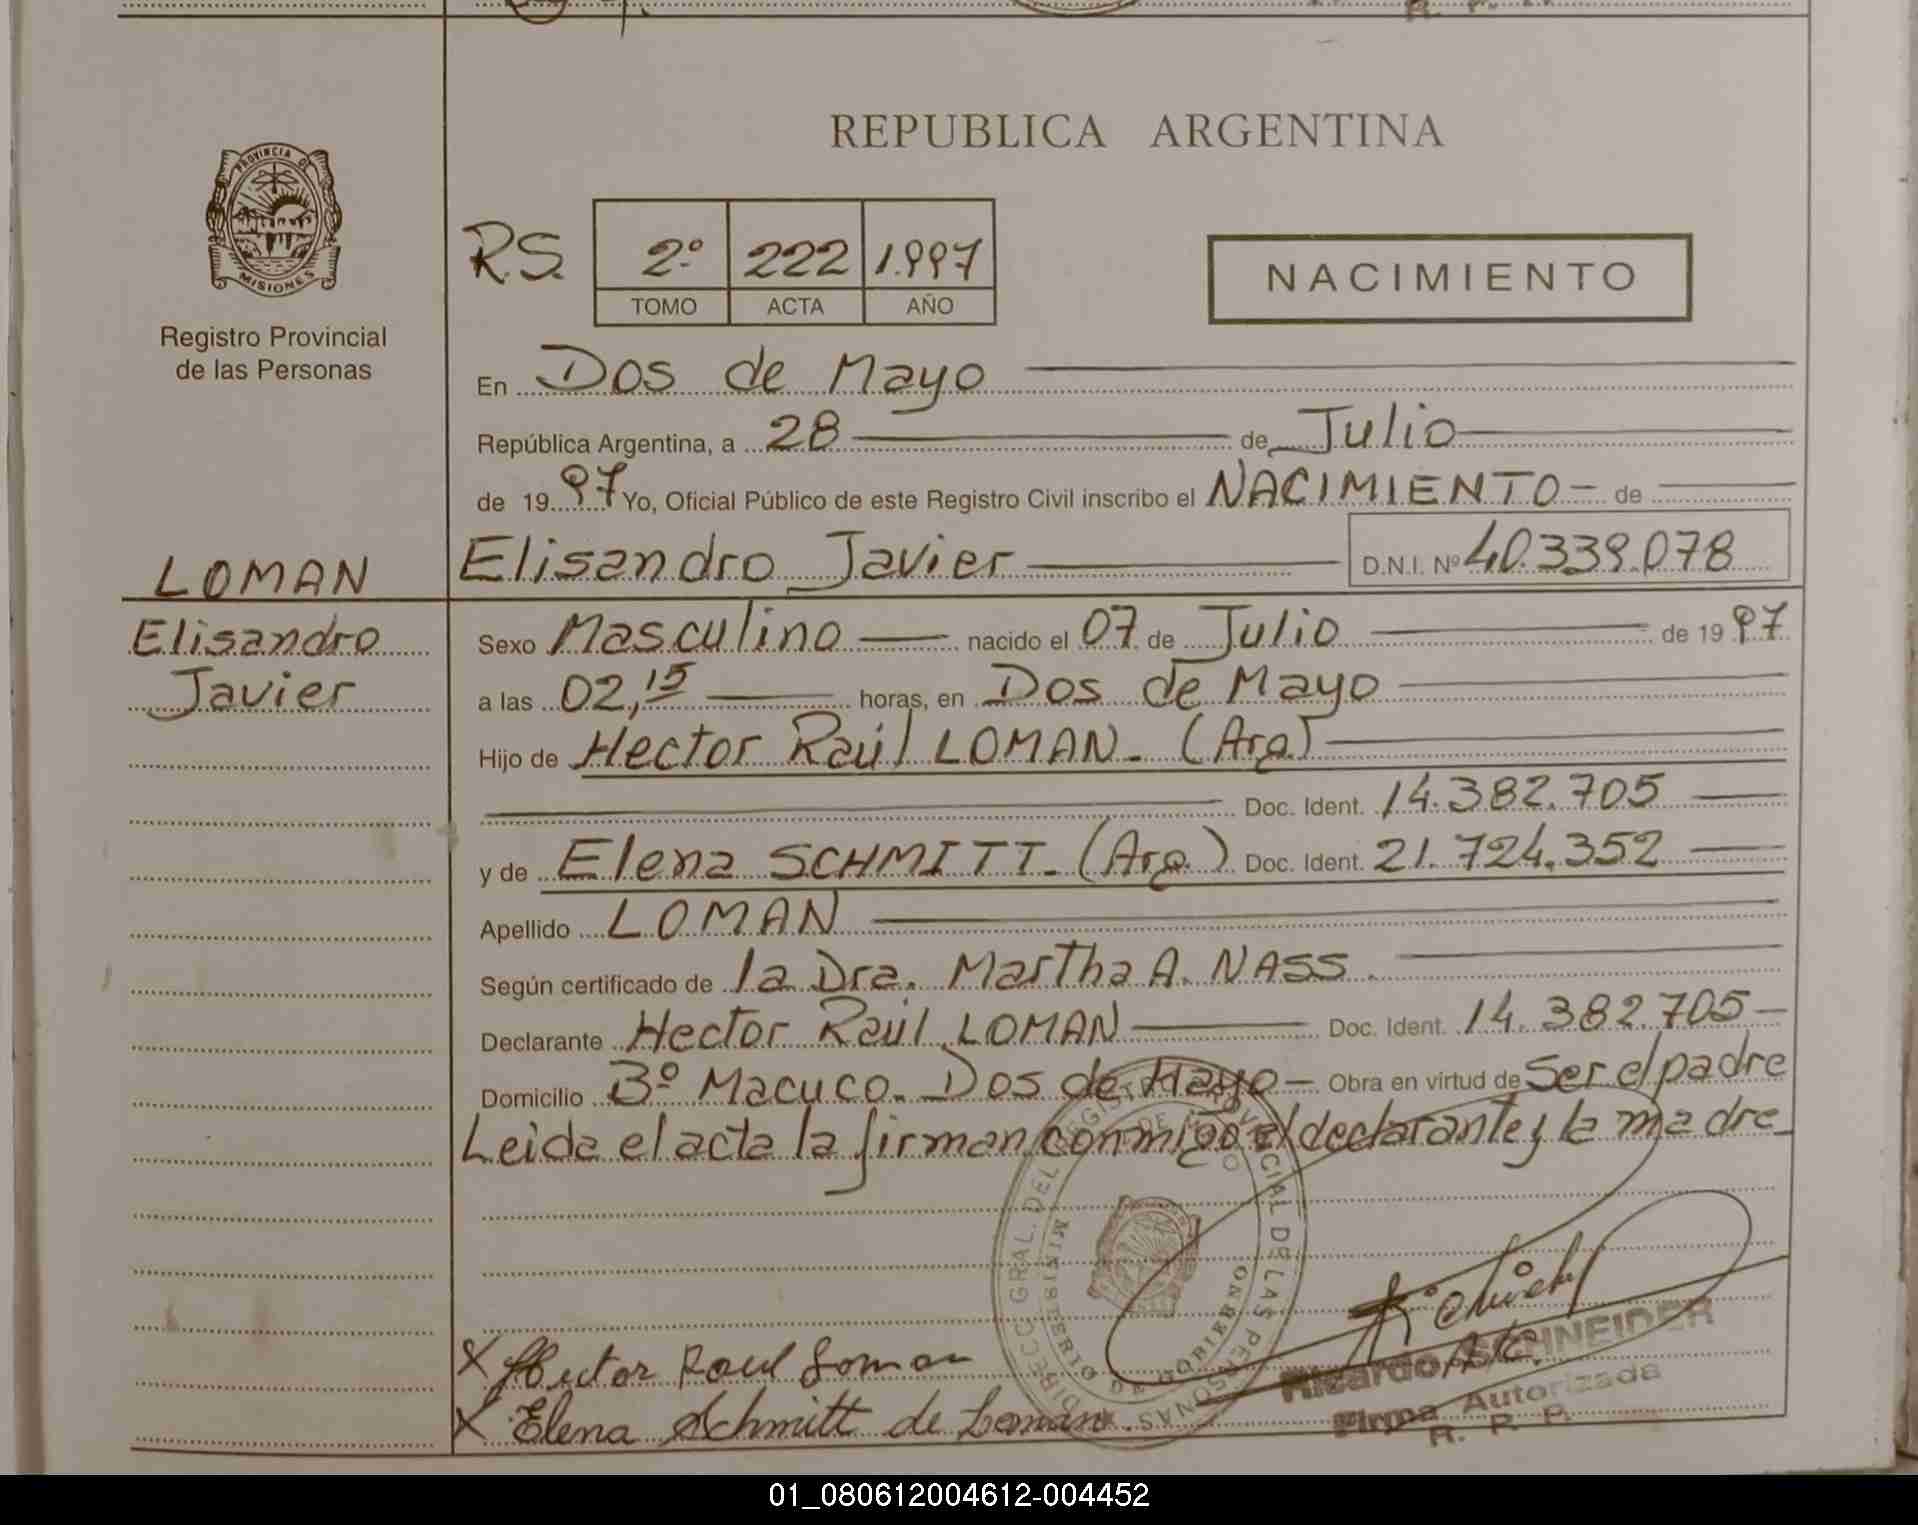 REPUBLICA ARGENTINA
PROVINCIA DE
MISIONES
Registro Provincial
de las Personas
R.S. 2º 222 1.997
TOMO ACTA AÑO
NACIMIENTO
En Dos de Mayo
República Argentina, a 28 de Julio
de 1997 Yo, Oficial Público de este Registro Civil inscribo el NACIMIENTO - de
LOMAN Elisandro Javier D.N.I. Nº 40.339.078
Elisandro
Javier
Sexo Masculino nacido el 07 de Julio de 1997
a las 02,15 horas, en Dos de Mayo
Hijo de Hector Raúl LOMAN - (Arg)
Doc. Ident. 14.382.705
y de Elena SCHMITT - (Arg.) Doc. Ident. 21.724.352
Apellido LOMAN
Según certificado de la Dra. Martha A. NASS.
Declarante Hector Raúl LOMAN Doc. Ident. 14.382.705 -
Domicilio Bº Macuco - Dos de Mayo - Obra en virtud de Ser el padre
Leida el acta la firman conmigo el declarante y la madre -
DIRECC. GRAL. DEL REGISTRO PROVINCIAL DE LAS PERSONAS
MINISTERIO DE GOBIERNO
X Hector Raul Loman
X Elena Schmitt de Loman.
Ricardo SCHNEIDER
Firma Autorizada
R. P. P.
01_080612004612-004452